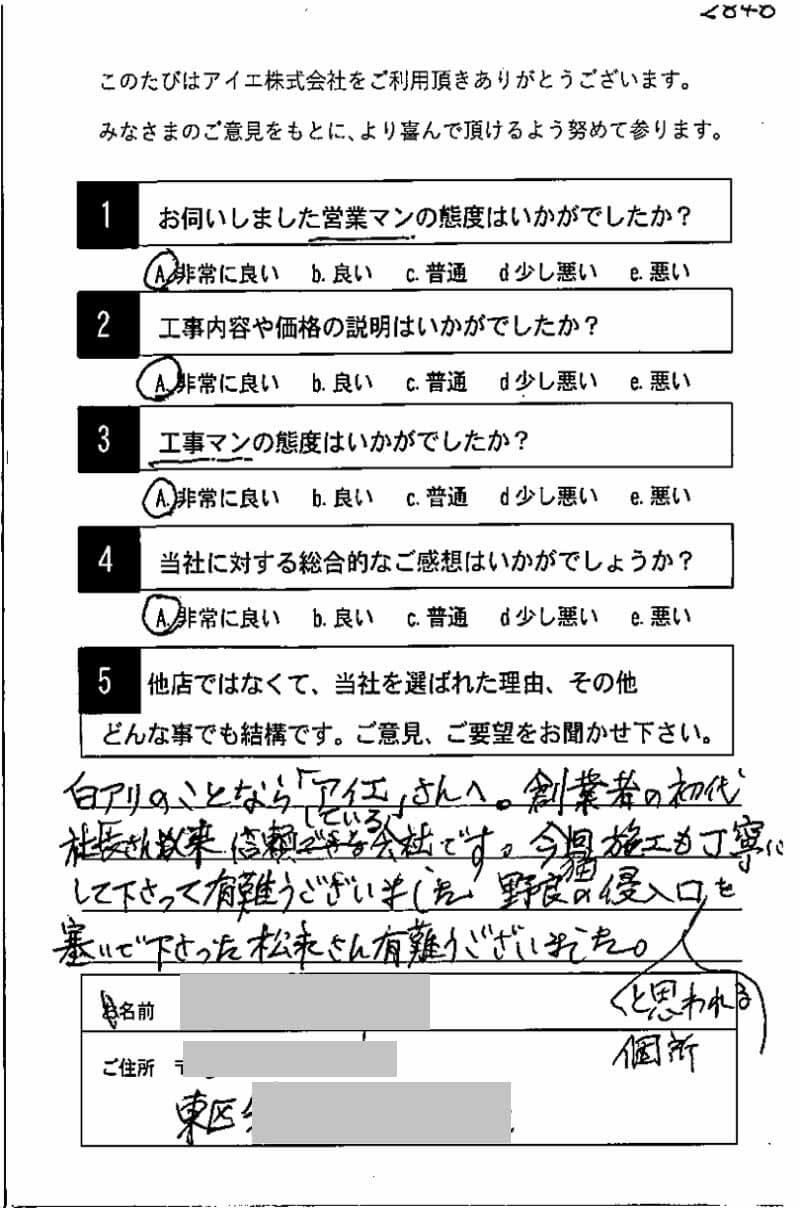 2848
このたびはアイエ株式会社をご利用頂きありがとうございます。
みなさまのご意見をもとに、より喜んで頂けるよう努めて参ります。
1 お伺いしました営業マンの態度はいかがでしたか？
A. 非常に良い b. 良い c. 普通 d 少し悪い e. 悪い
2 工事内容や価格の説明はいかがでしたか？
A. 非常に良い b. 良い c. 普通 d 少し悪い e. 悪い
3 工事マンの態度はいかがでしたか？
A. 非常に良い b. 良い c. 普通 d 少し悪い e. 悪い
4 当社に対する総合的なご感想はいかがでしょうか？
A. 非常に良い b. 良い c. 普通 d 少し悪い e. 悪い
5 他店ではなくて、当社を選ばれた理由、その他
どんな事でも結構です。ご意見、ご要望をお聞かせ下さい。
白アリのことなら「アイエ」さんへ。創業者の初代
社長さん以来信頼している会社です。今回施工も丁寧に
して下さって有難うございました 野良猫の侵入口を
塞いで下さった松来さん有難うございました。
くと思われる
個所
お名前
ご住所 〒
東区